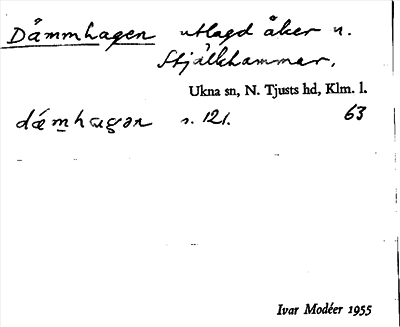 Dämmhagen utlagd åker n.
Stjälkhammar.
Ukna sn, N. Tjusts hd, Klm. l.
dǽm̲hagən s. 121. 63
Ivar Modéer 1955